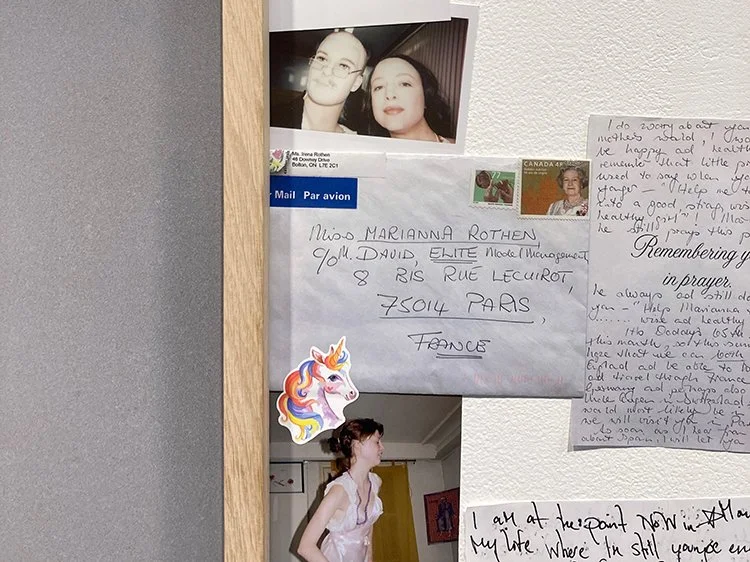 Ms. Irena Rothen
48 Downey Drive
Bolton, ON L7E 2C1
Mail Par avion
77
CANADA 48
Miss MARIANNA ROTHEN,
c/o M. DAVID, ELITE Model Management
8 BIS RUE LECUIROT,
75014 PARIS,
FRANCE
I do worry about
mother's would, I
be happy ad health
remember that little
used to say when
younger - "Help me
into a good strong
healthy girl"! Man
he still prays this
Remembering y
in prayer.
he always ad still
you - "Help Marianna
wise ad healthy
It's Daddy's 65th
this month, so this
hope that we can both
England ad be able to
ad travel through France
Germany ad perhaps also
Uncle in Switzerland
would most likely be
we will visit you in
So soon as I hear from
about Spain, I will let
I am at the point NOW in
My life where I'm still